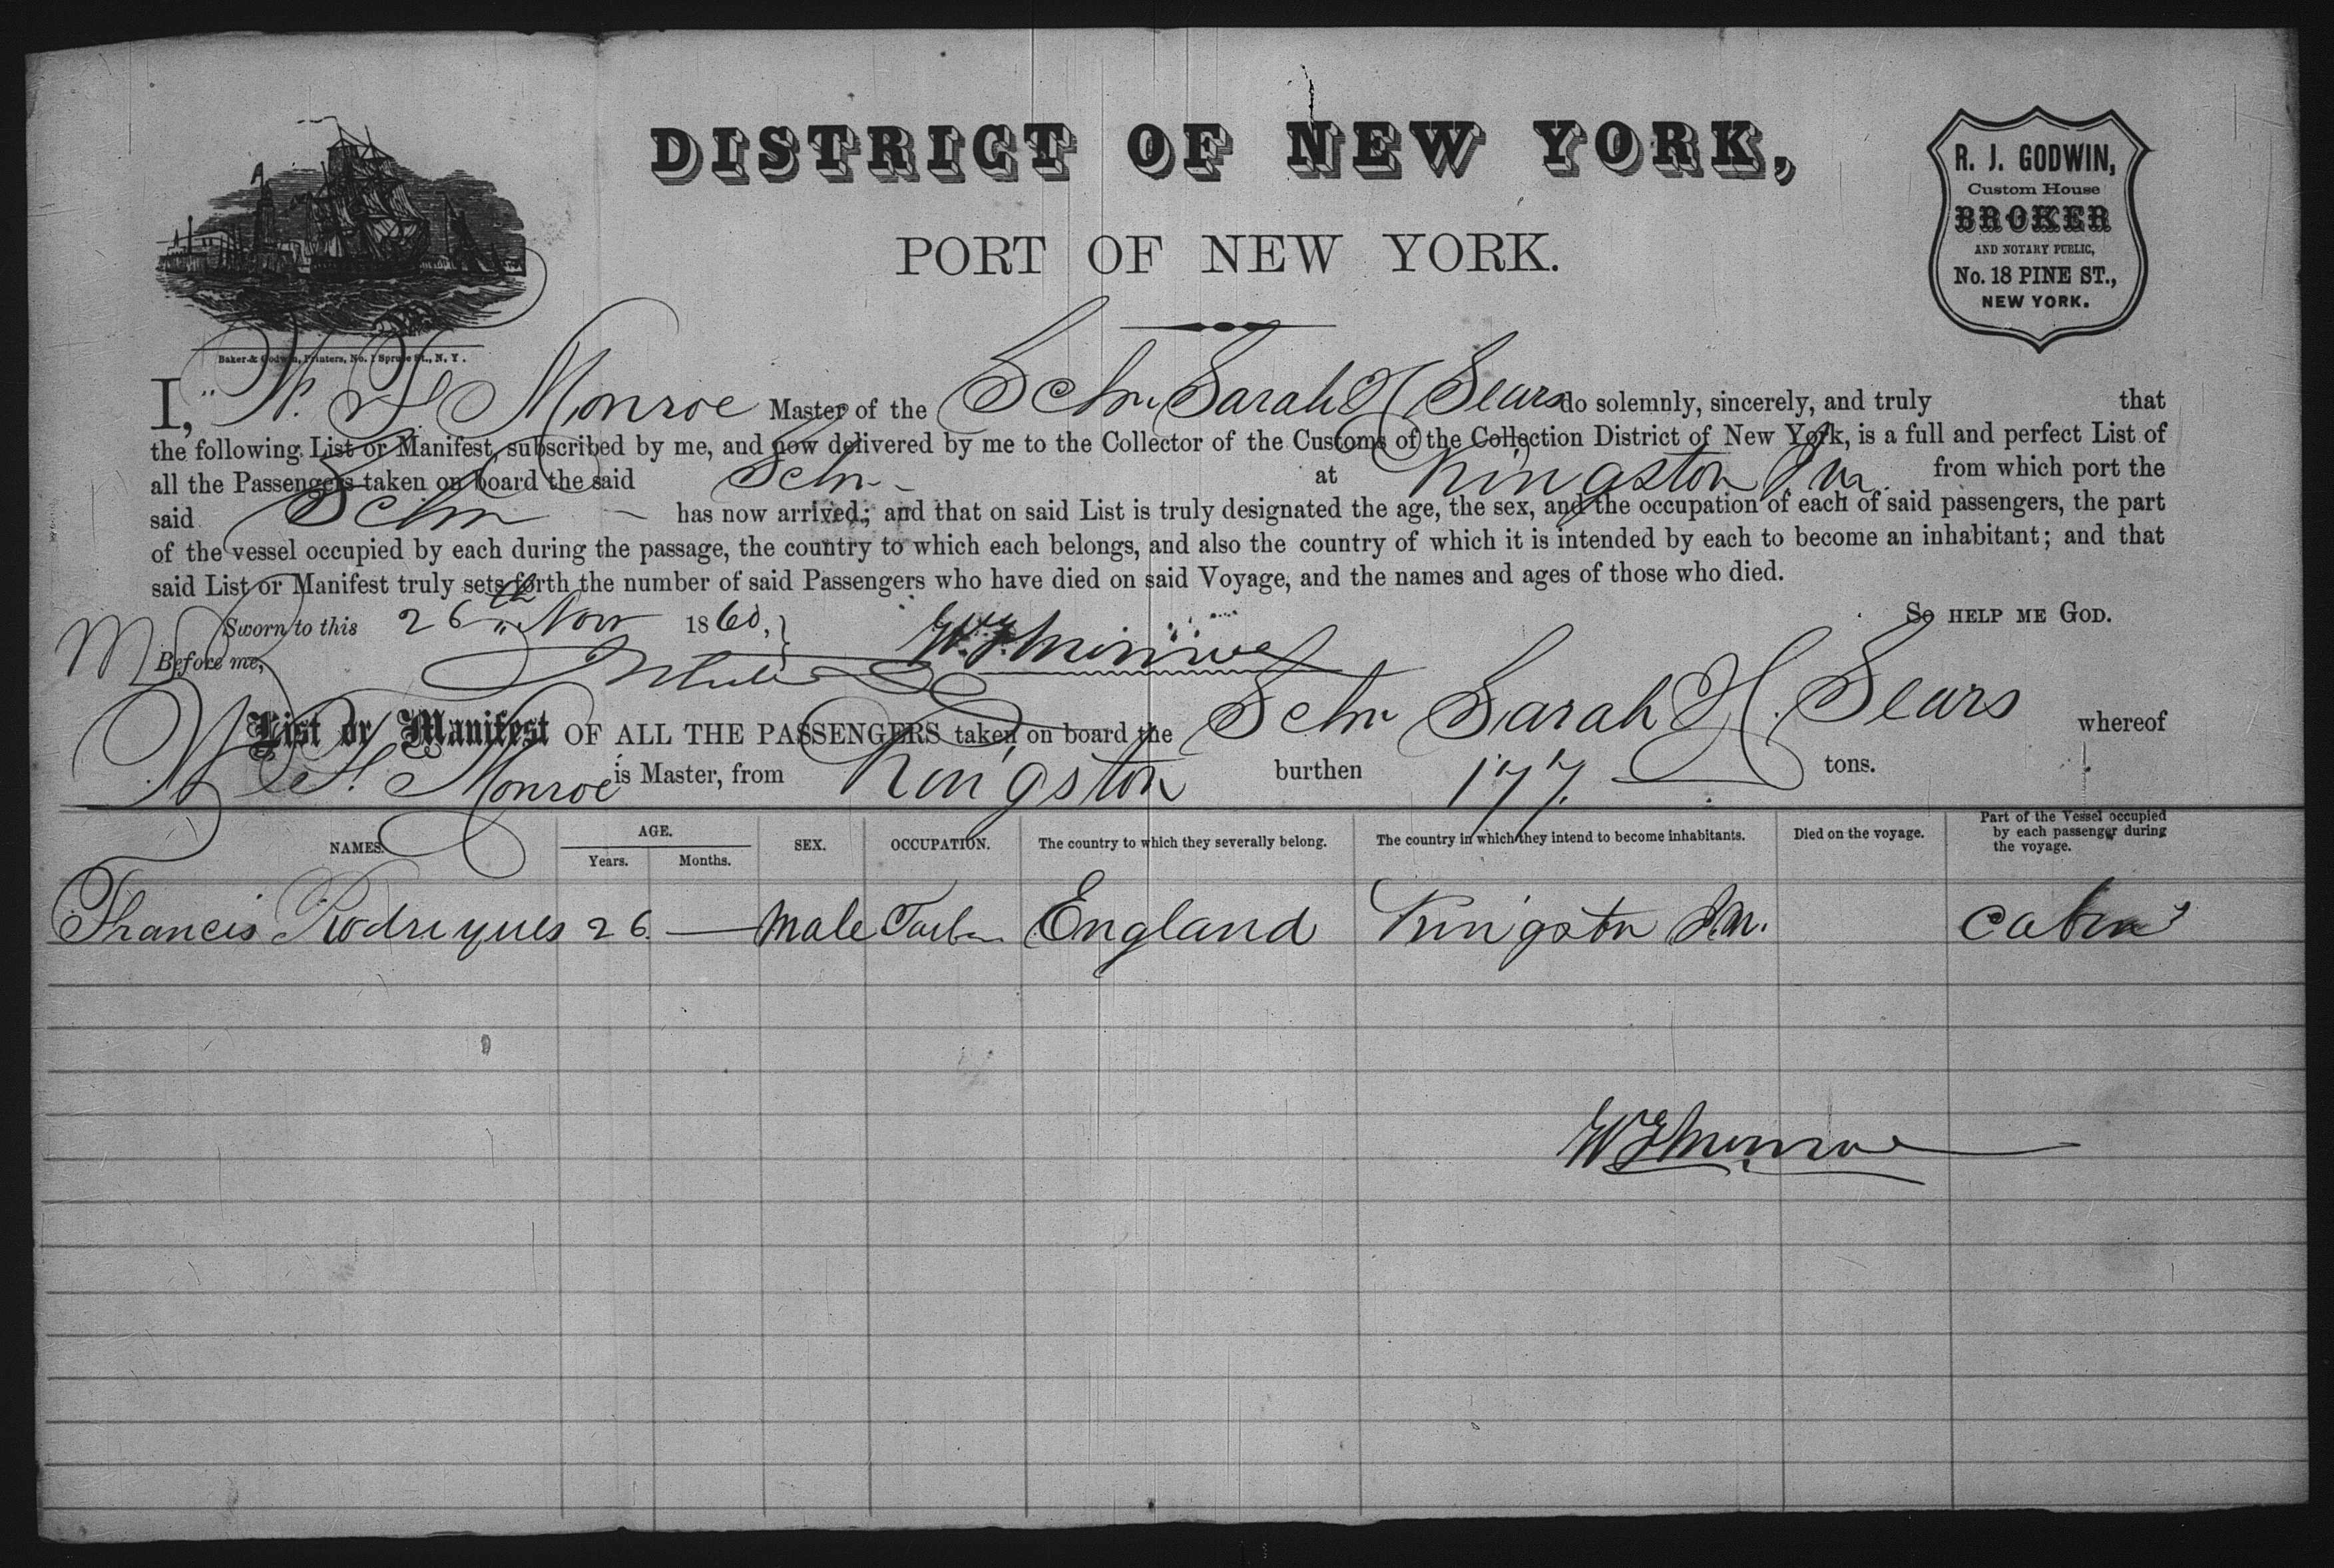 DISTRICT OF NEW YORK,
PORT OF NEW YORK.
R. J. GODWIN,
Custom House
BROKER
AND NOTARY PUBLIC,
No. 18 PINE ST.,
NEW YORK.
Baker & Godwin, Printers, No. 1 Spruce St., N. Y.
I, W. F. Monroe Master of the Schr. Sarah H Sears do solemnly, sincerely, and truly that
the following List or Manifest, subscribed by me, and now delivered by me to the Collector of the Customs of the Collection District of New York, is a full and perfect List of
all the Passengers taken on board the said Schr at Kingston Jm. from which port the
said Schr has now arrived; and that on said List is truly designated the age, the sex, and the occupation of each of said passengers, the part
of the vessel occupied by each during the passage, the country to which each belongs, and also the country of which it is intended by each to become an inhabitant; and that
said List or Manifest truly sets forth the number of said Passengers who have died on said Voyage, and the names and ages of those who died.
So HELP ME GOD.
Sworn to this 26th Nov 1860,
Before me, W. F. Monroe
List or Manifest OF ALL THE PASSENGERS taken on board the Schr Sarah H. Sears whereof
W F. Monroe is Master, from Kingston burthen 177. tons.
NAMES. AGE. Years. Months. SEX. OCCUPATION. The country to which they severally belong. The country in which they intend to become inhabitants. Died on the voyage. Part of the Vessel occupied by each passenger during the voyage.
Francis Rodriques 26. — Male England Kingston Jm. Cabin
W F Monroe